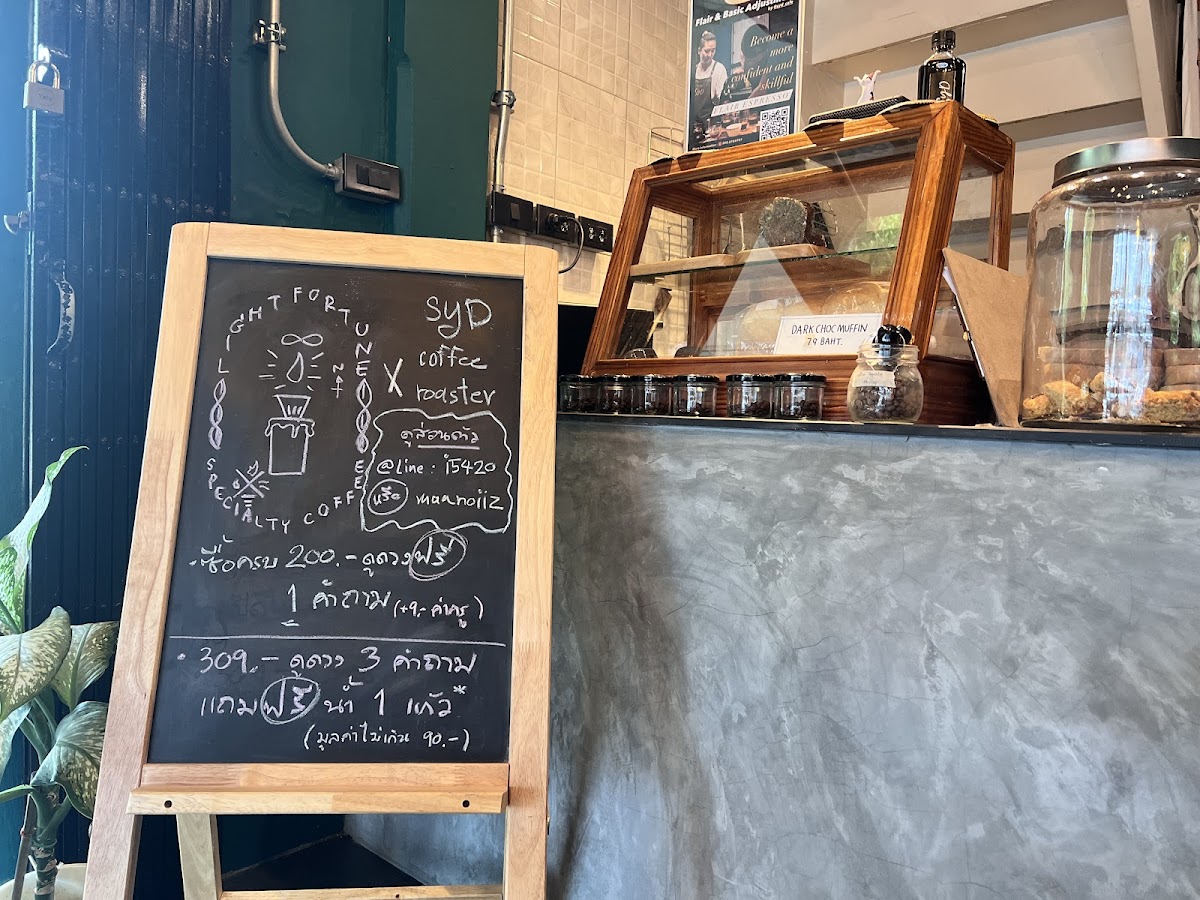 LIGHT FORTUNE
NAT
SPECIALTY COFFEE
SYD
X coffee
roaster
ดูส่วนตัว
@Line : i5420
หรือ maanoiiz
· ซื้อครบ 200.- ดูดวงฟรี
1 คำถาม (+9.- ค่าครู)
· 309.- ดูดวง 3 คำถาม
แถมฟรี น้ำ 1 แก้ว*
(มูลค่าไม่เกิน 90.-)
Flair & Basic Adjust
Become a
more
confident and
skillful
FLAIR ESPRESSO
DARK CHOC MUFFIN
79 BAHT.